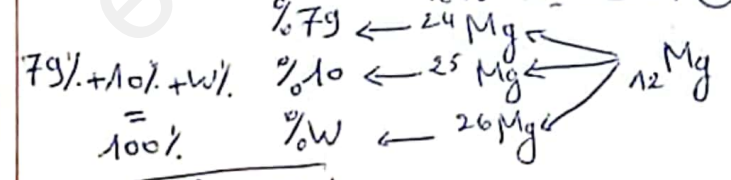 %79 ← 24 Mg
79%+10%+W% %10 ← 25 Mg 12 Mg
=
100% %W ← 26 Mg